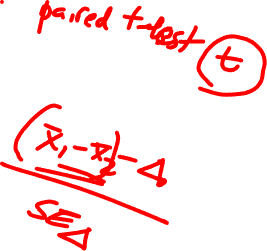 paired t-test t
(x̄₁ - x̄₂) - Δ
SE Δ